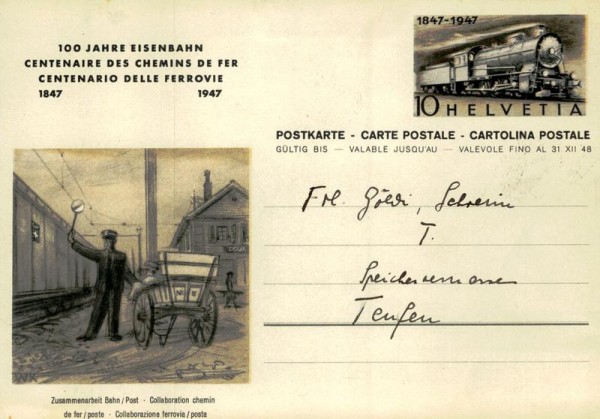 100 JAHRE EISENBAHN
CENTENAIRE DES CHEMINS DE FER
CENTENARIO DELLE FERROVIE
1847 1947
1847-1947
10 HELVETIA
POSTKARTE - CARTE POSTALE - CARTOLINA POSTALE
GÜLTIG BIS — VALABLE JUSQU'AU — VALEVOLE FINO AL 31 XII 48
Frl. Göldi,
T.
Teufen
Zusammenarbeit Bahn/Post · Collaboration chemin
de fer/poste · Collaborazione ferrovia/posta